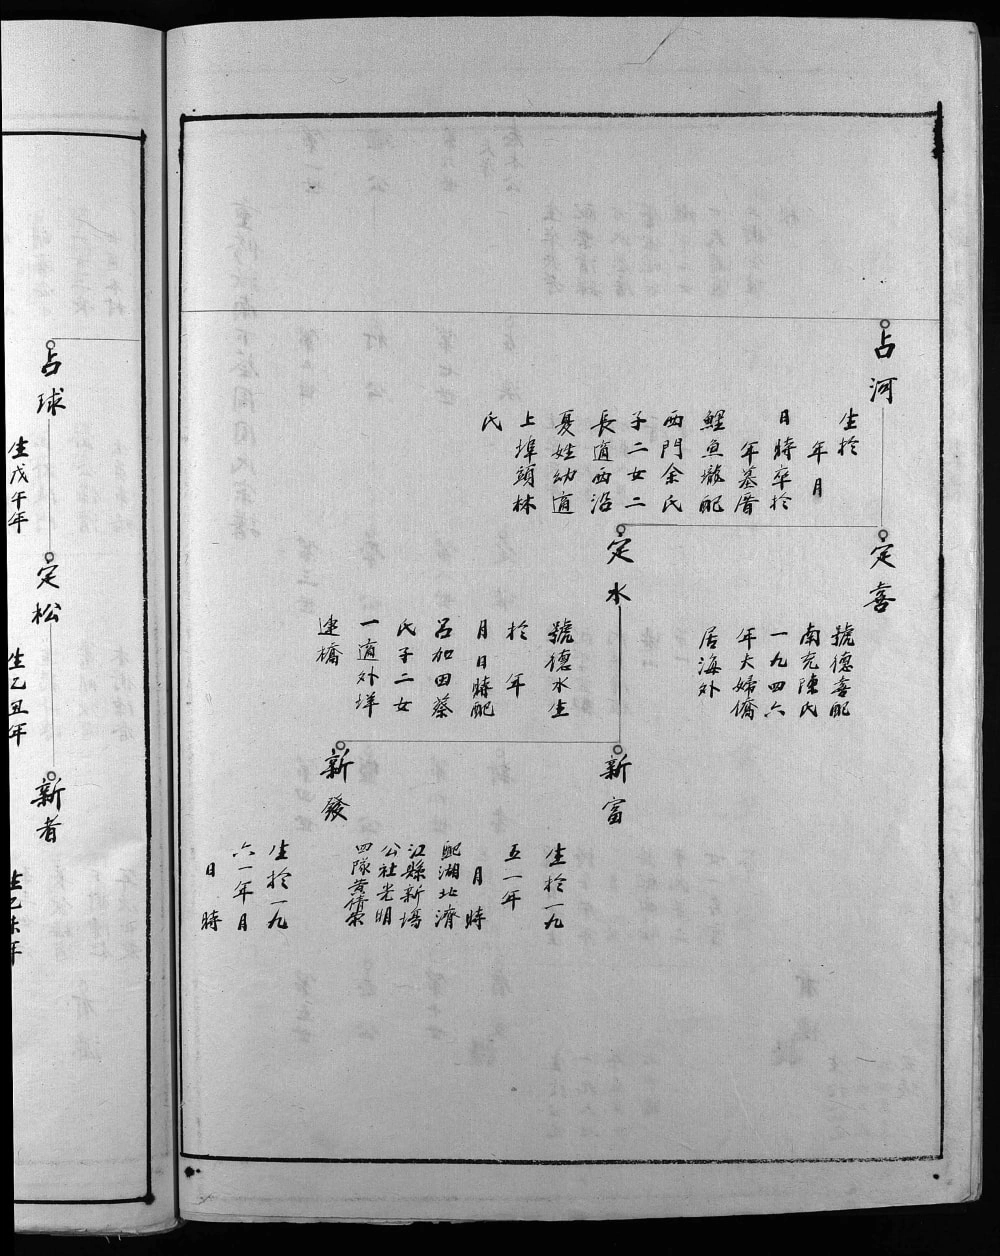 占河
生於
年月
日時卒於
年墓厝
鯉魚壠配
西門余氏
子二女二
長適西沿
夏姓幼適
上埠頭林
氏
定喜
號德喜配
南充陳氏
一九四六
年夫婦僑
居海外
定水
號德水生
於 年
月日時配
呂加田蔡
氏子二女
一適外洋
建橋
新富
生於一九
五一年
月 時
配湖北潛
江縣新場
公社光明
四隊黃倩榮
新發
生於一九
六一年月
日 時
占球
生戊午年
定松
生乙丑年
新者
生乙未年